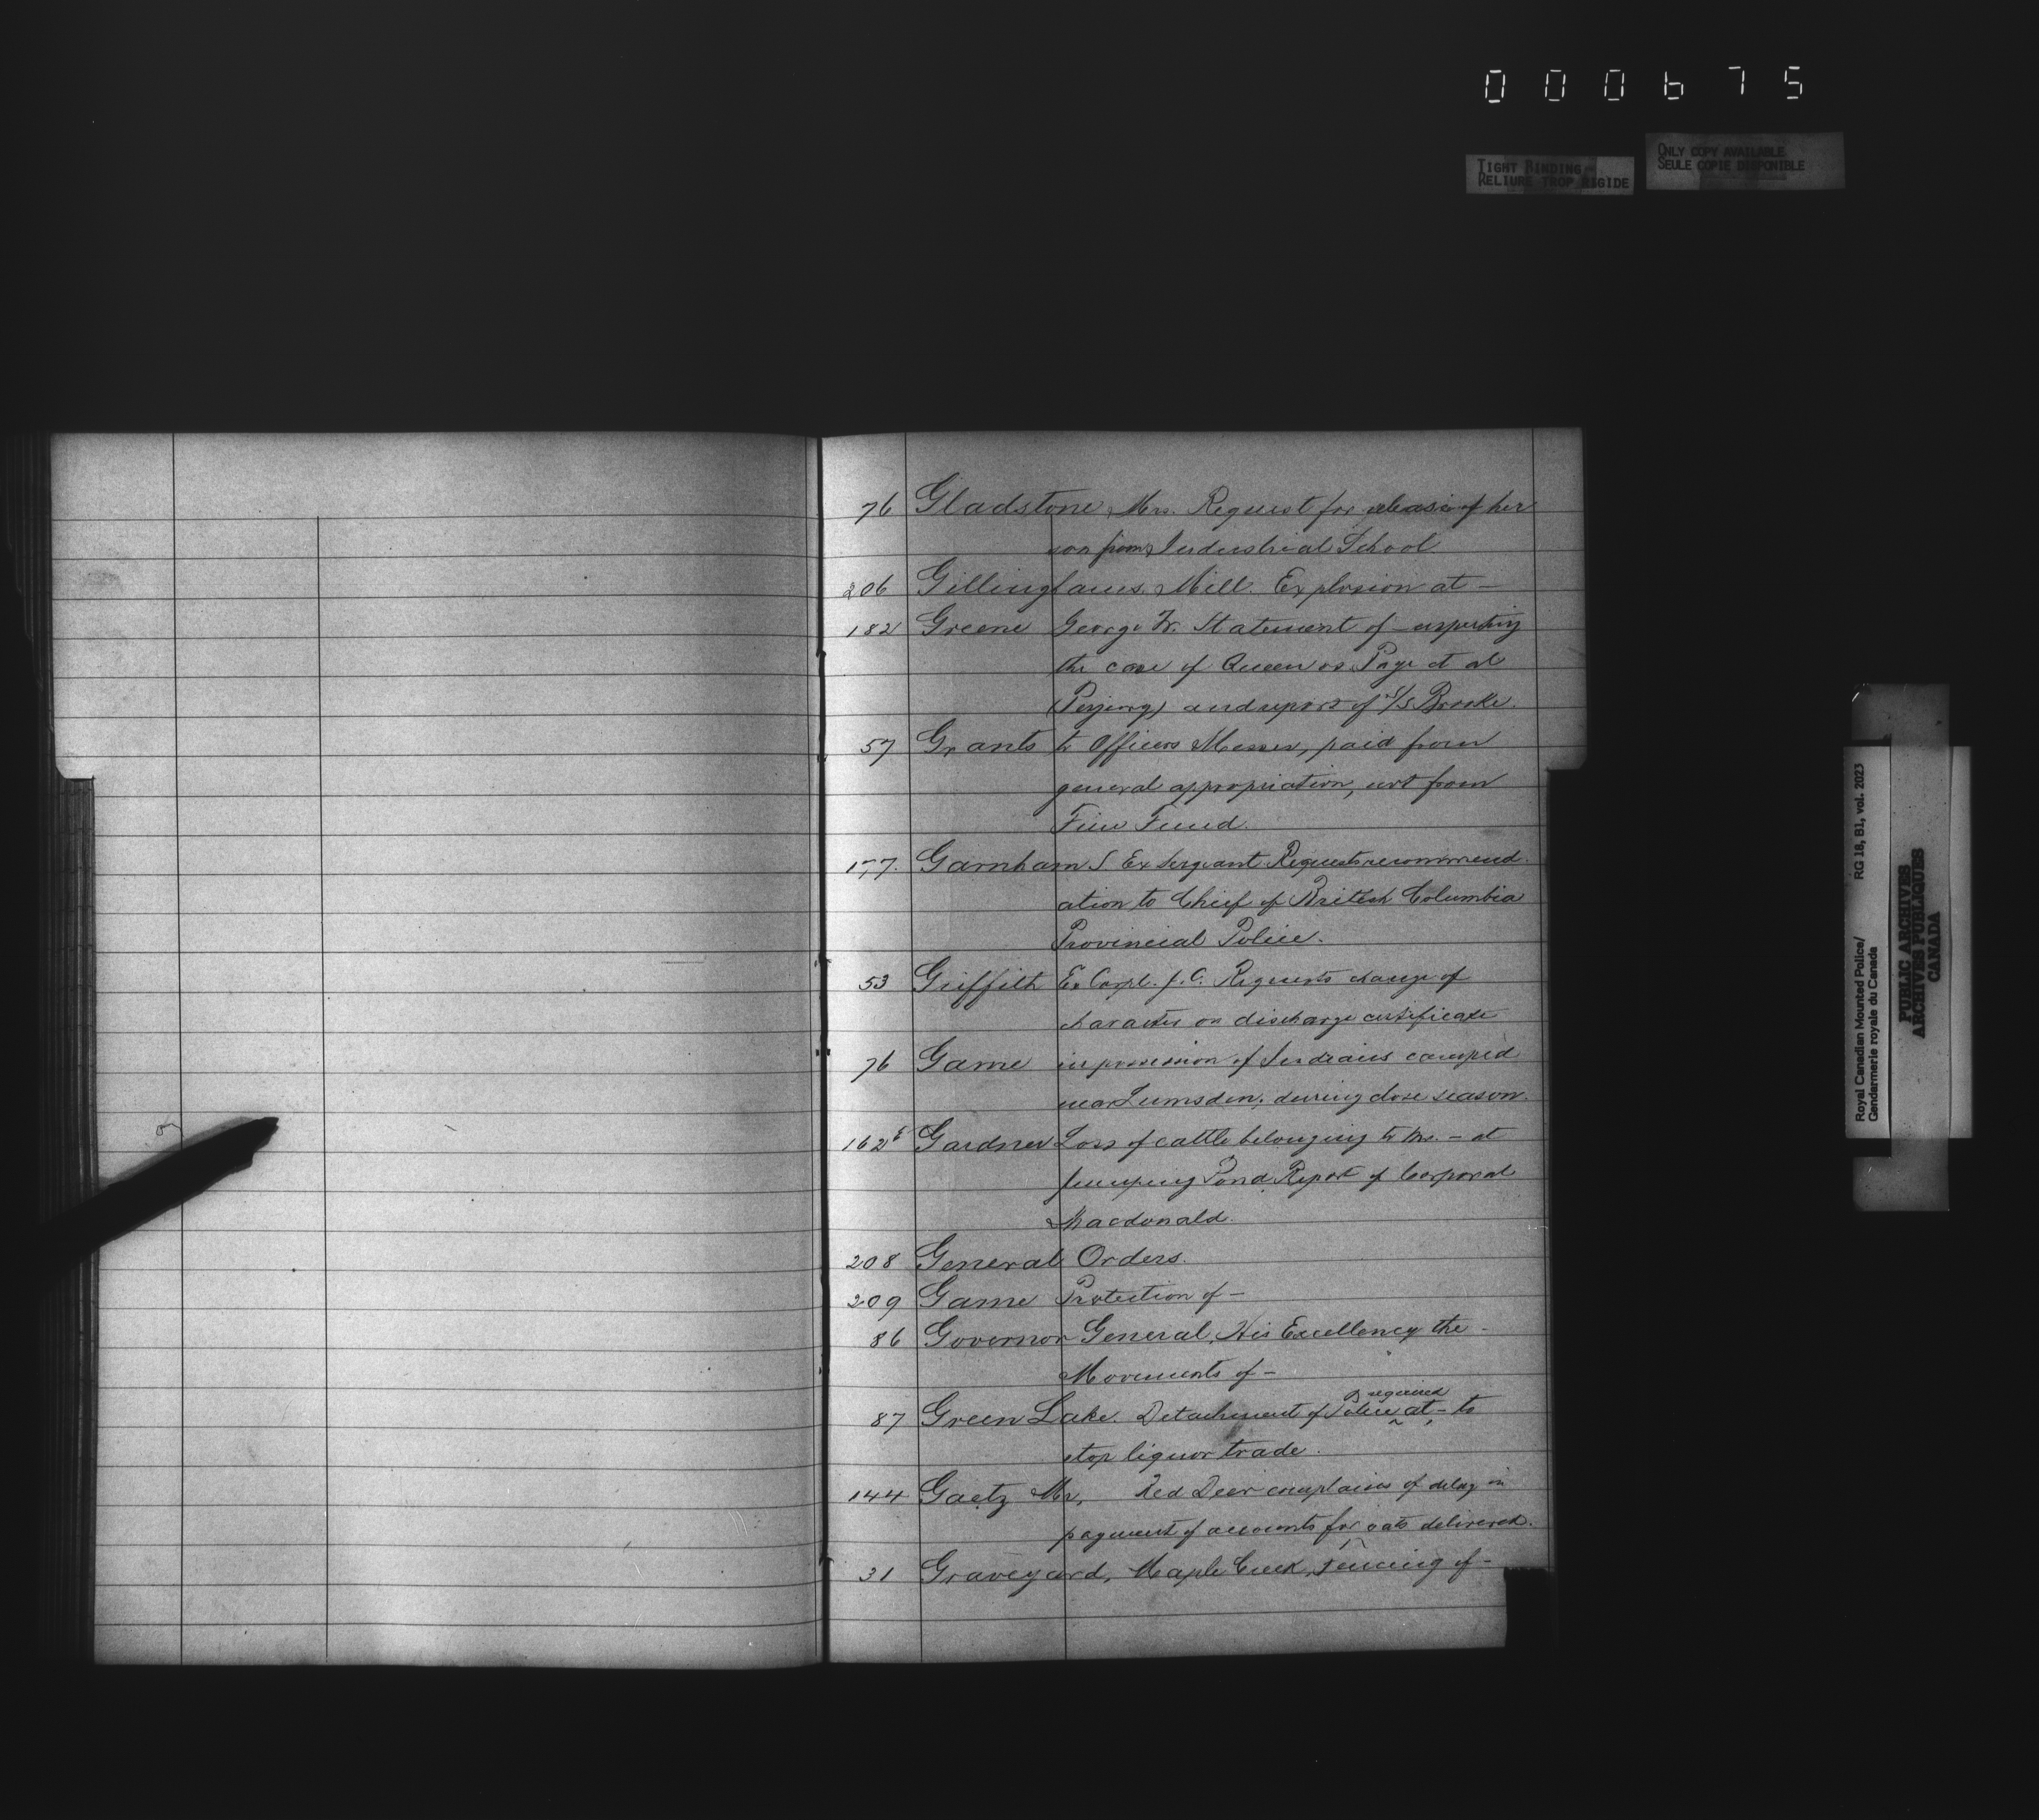 000675
TIGHT BINDING
RELIURE TROP RIGIDE
ONLY COPY AVAILABLE
SEULE COPIE DISPONIBLE
76 Gladstone Mrs. Request for release of her
son from Industrial School
206 Gillinghams Mill. Explosion at —
182 Greene George W. Statement of — respecting
the case of Queen vs Page et al
(Perjury) and report of S/S Brooke.
57 Grants to Officers Messes, paid from
general appropriation, not from
Fine Fund.
177. Garnham S Ex Sergeant Requests recommend.
ation to Chief of British Columbia
Provincial Police.
53 Griffith Ex Corpl. J. C. Requests change of
character on discharge certificate
76 Game in possession of Indians camped
near Lumsden, during close season.
162 Gardner Loss of cattle belonging to Mr. — at
Jumping Pond. Report of Corporal
Macdonald.
208 General Orders.
209 Game Protection of —
86 Governor General, His Excellency the —
Movements of —
87 Green Lake. Detachment of Police required at — to
stop liquor trade.
144 Gaetz Mr, Red Deer complains of delay in
payment of accounts for oats delivered.
31 Graveyard, Maple Creek, Fencing of —
Royal Canadian Mounted Police/ RG 18, B1, vol. 2023
Gendarmerie royale du Canada
PUBLIC ARCHIVES
ARCHIVES PUBLIQUES
CANADA